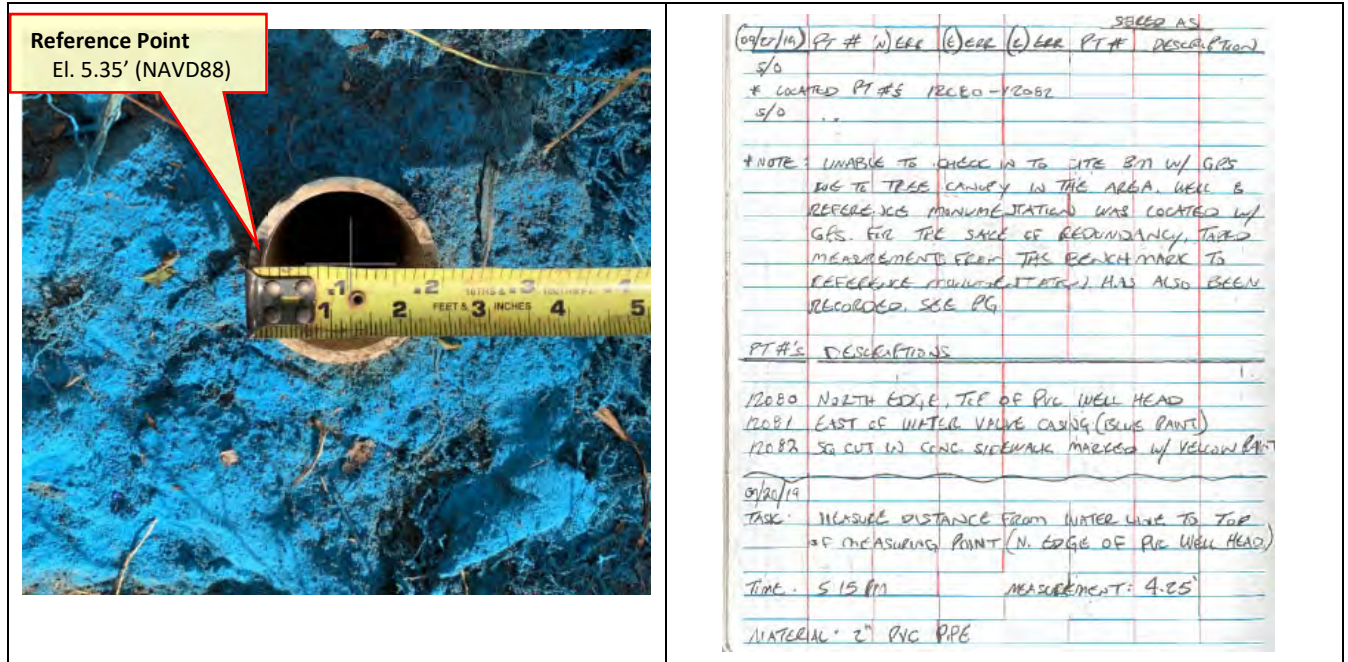 Reference Point
El. 5.35’ (NAVD88)
.1 .2 .3 .4
10THS & 100THS FT.
1 2 3 4 5
FEET & INCHES
STORED AS
(09/27/19) PT # (N) ERR (E) ERR (Z) ERR PT # DESCRIPTION
S/O
* LOCATED PT #'S 12080-12082
S/O
* NOTE: UNABLE TO CHECK IN TO SITE BM W/ GPS
DUE TO TREE CANOPY IN THE AREA. WELL &
REFERENCE MONUMENTATION WAS LOCATED W/
GPS. FOR THE SAKE OF REDUNDANCY, TAPED
MEASUREMENTS FROM THE BENCH MARK TO
REFERENCE MONUMENTATION HAS ALSO BEEN
RECORDED. SEE PG
PT #'S DESCRIPTIONS
12080 NORTH EDGE, TOP OF PVC WELL HEAD
12081 EAST OF WATER VALVE CASING (BLUE PAINT)
12082 SQ CUT IN CONC. SIDEWALK MARKED W/ YELLOW PAINT
TASK: MEASURE DISTANCE FROM WATER LINE TO TOP
OF MEASURING POINT (N. EDGE OF PVC WELL HEAD)
TIME: 5 15 PM MEASUREMENT: 4.25'
MATERIAL: 2" PVC PIPE